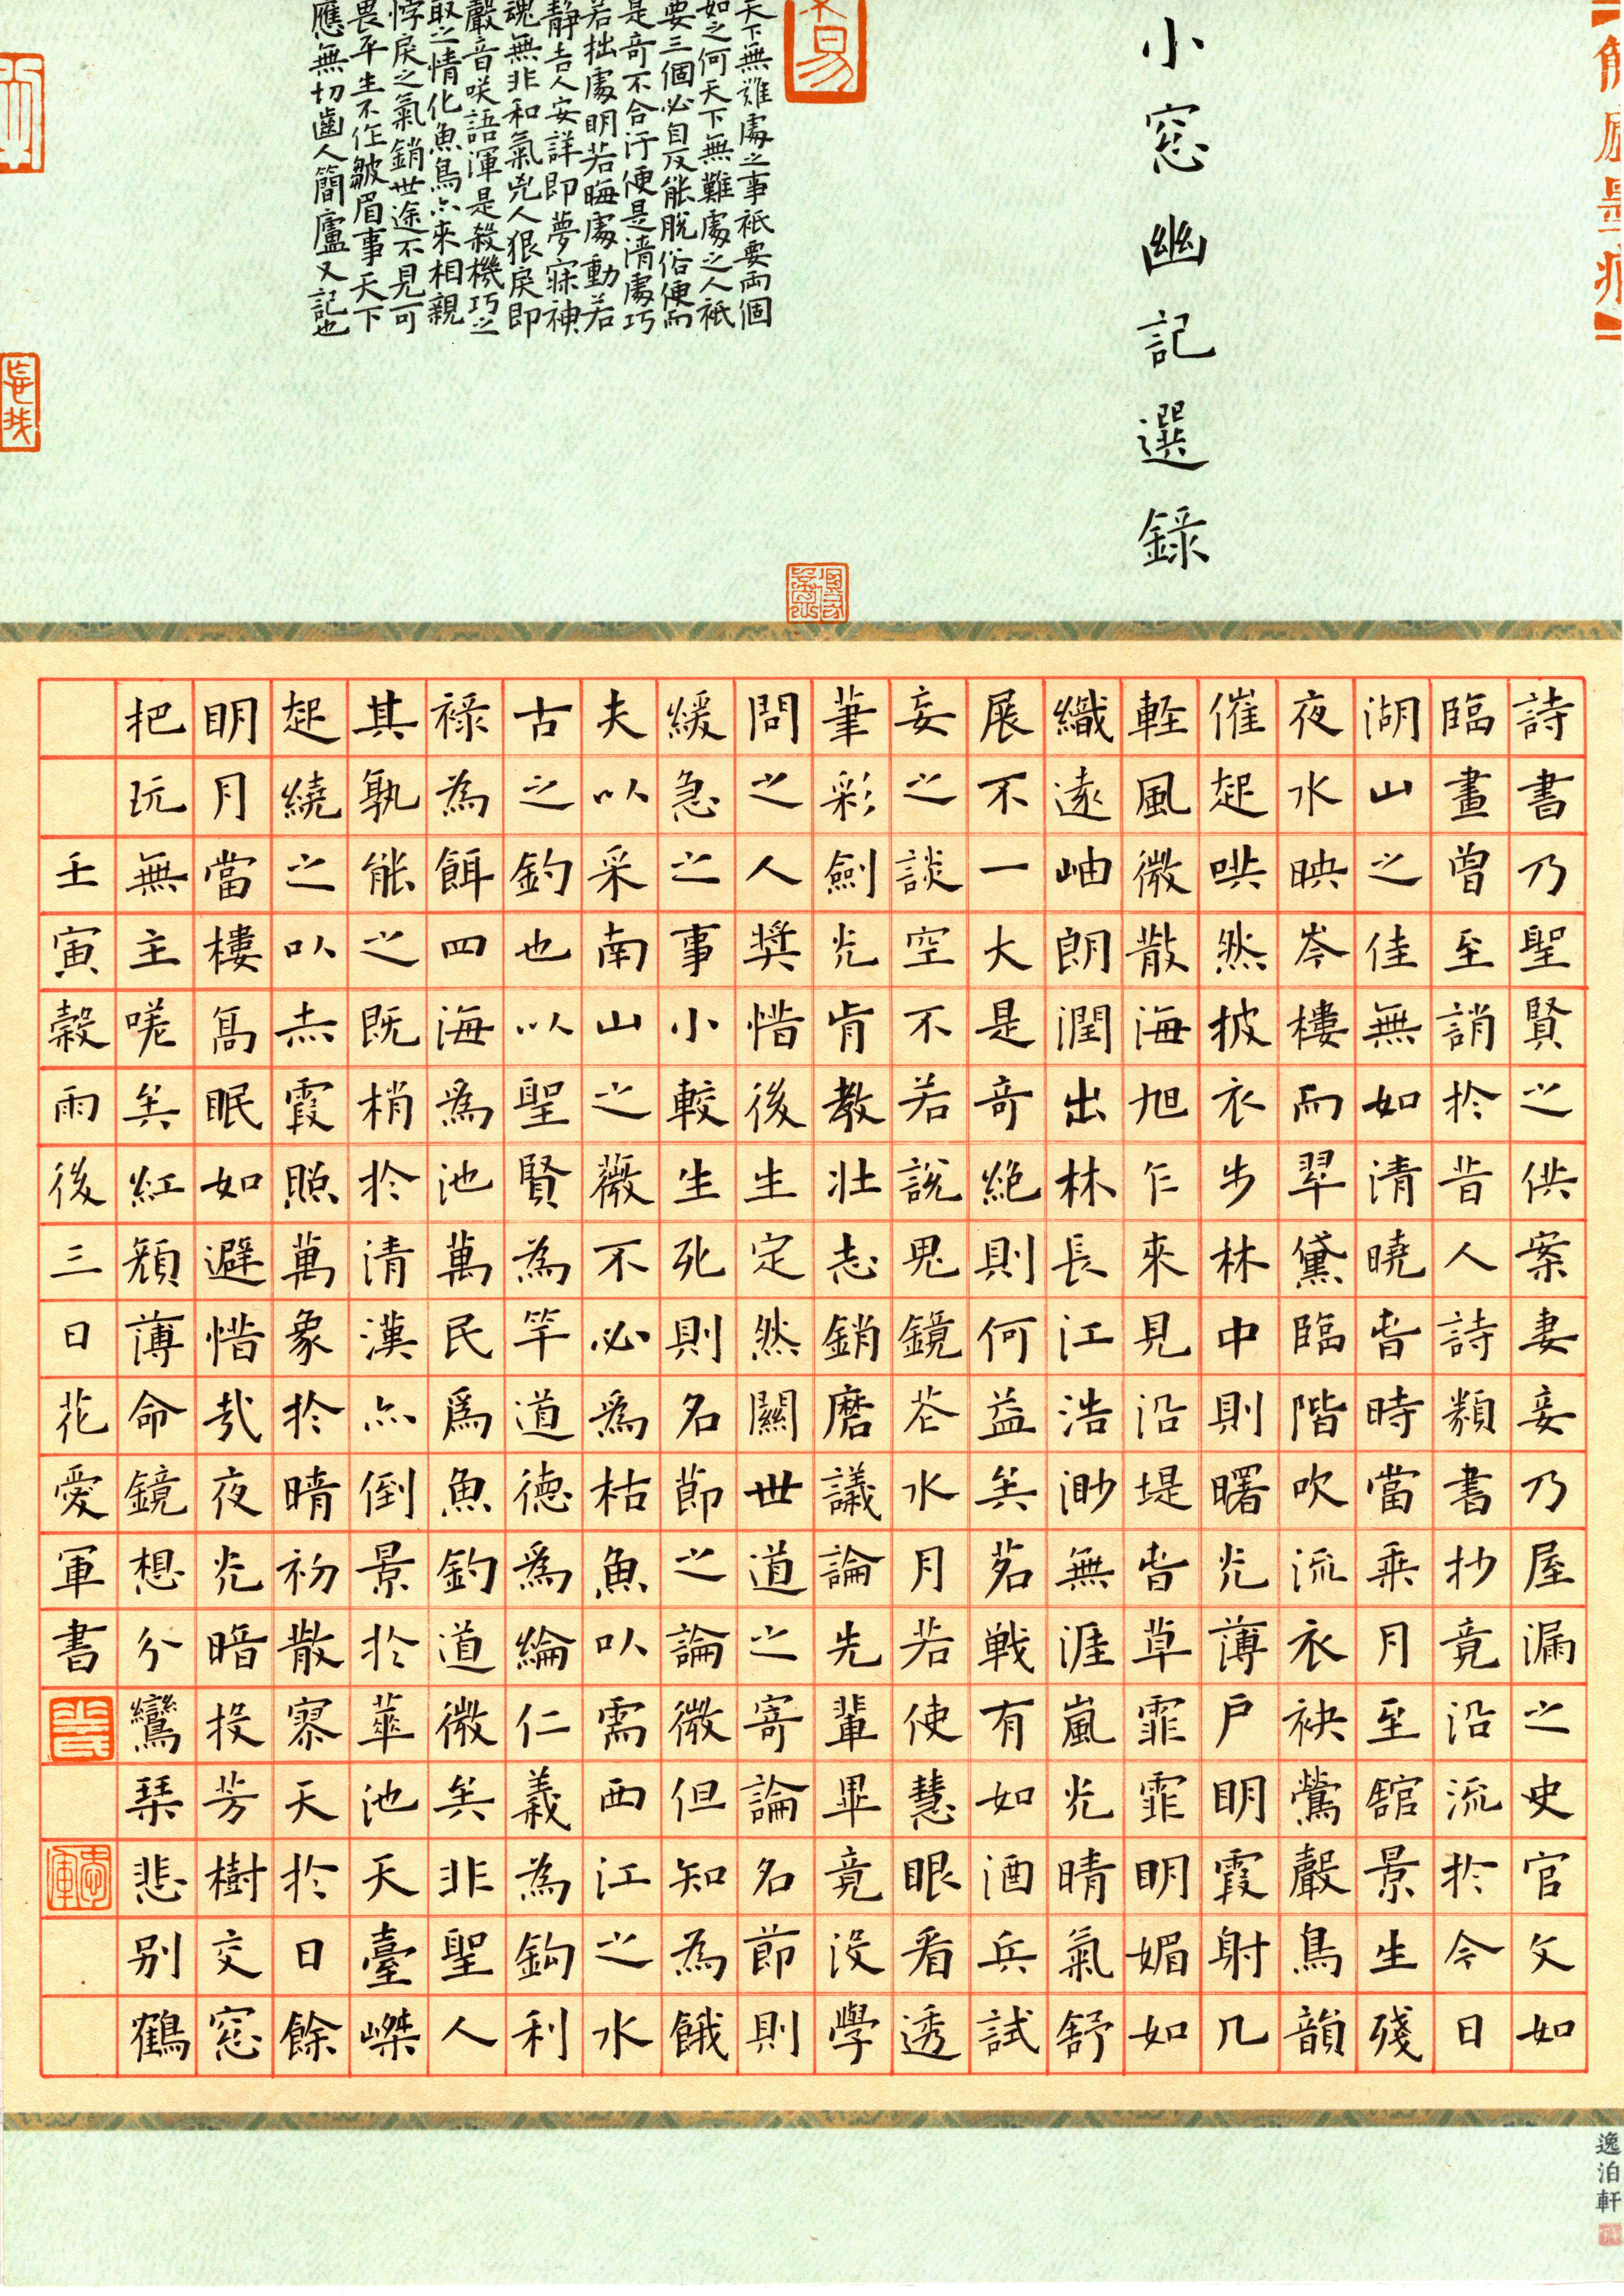 小窓幽記選錄
天下無難處之事祇要兩個
如之何天下無難處之人祇
要三個必自反能脫俗便而
是奇不合汙便是清處巧
若拙處明若晦處動若
靜吉人安詳即夢寐神
魂無非和氣兇人狠戾即
聲音咲語渾是殺機巧之
取之情化魚鳥亦來相親
悖戾之氣銷世途不見可
畏平生不作皺眉事天下
應無切齒人簡廬又記也
詩書乃聖賢之供案妻妾乃屋漏之史官文如
臨畫曾至誚於昔人詩類書抄竟沿流於今日
湖山之佳無如清曉旾時當乗月至舘景生殘
夜水映岑樓而翠黛臨階吹流衣袂鶯聲鳥韻
催起哄然披衣步林中則曙光薄戶明霞射几
輕風微散海旭乍來見沿堤旾草霏霏明媚如
織遠岫朗潤出林長江浩渺無涯嵐光晴氣舒
展不一大是奇絶則何益矣茗戰有如酒兵試
妄之談空不若說鬼鏡花水月若使慧眼看透
筆彩劍光肯教壯志銷磨議論先輩畢竟沒學
問之人奬惜後生定然關世道之寄論名節則
緩急之事小較生死則名節之論微但知為餓
夫以采南山之薇不必為枯魚以需西江之水
古之釣也以聖賢為竿道德為綸仁義為鈎利
祿為餌四海為池萬民為魚釣道微矣非聖人
其孰能之既梢於清漢亦倒景於華池天臺嵥
起繞之以赤霞照萬象於晴初散寥天於日餘
明月當樓高眠如避惜哉夜光暗投芳樹交窓
把玩無主嗟矣紅顔薄命鏡想分鸞琴悲別鶴
壬寅穀雨後三日花愛軍書
逸泊軒